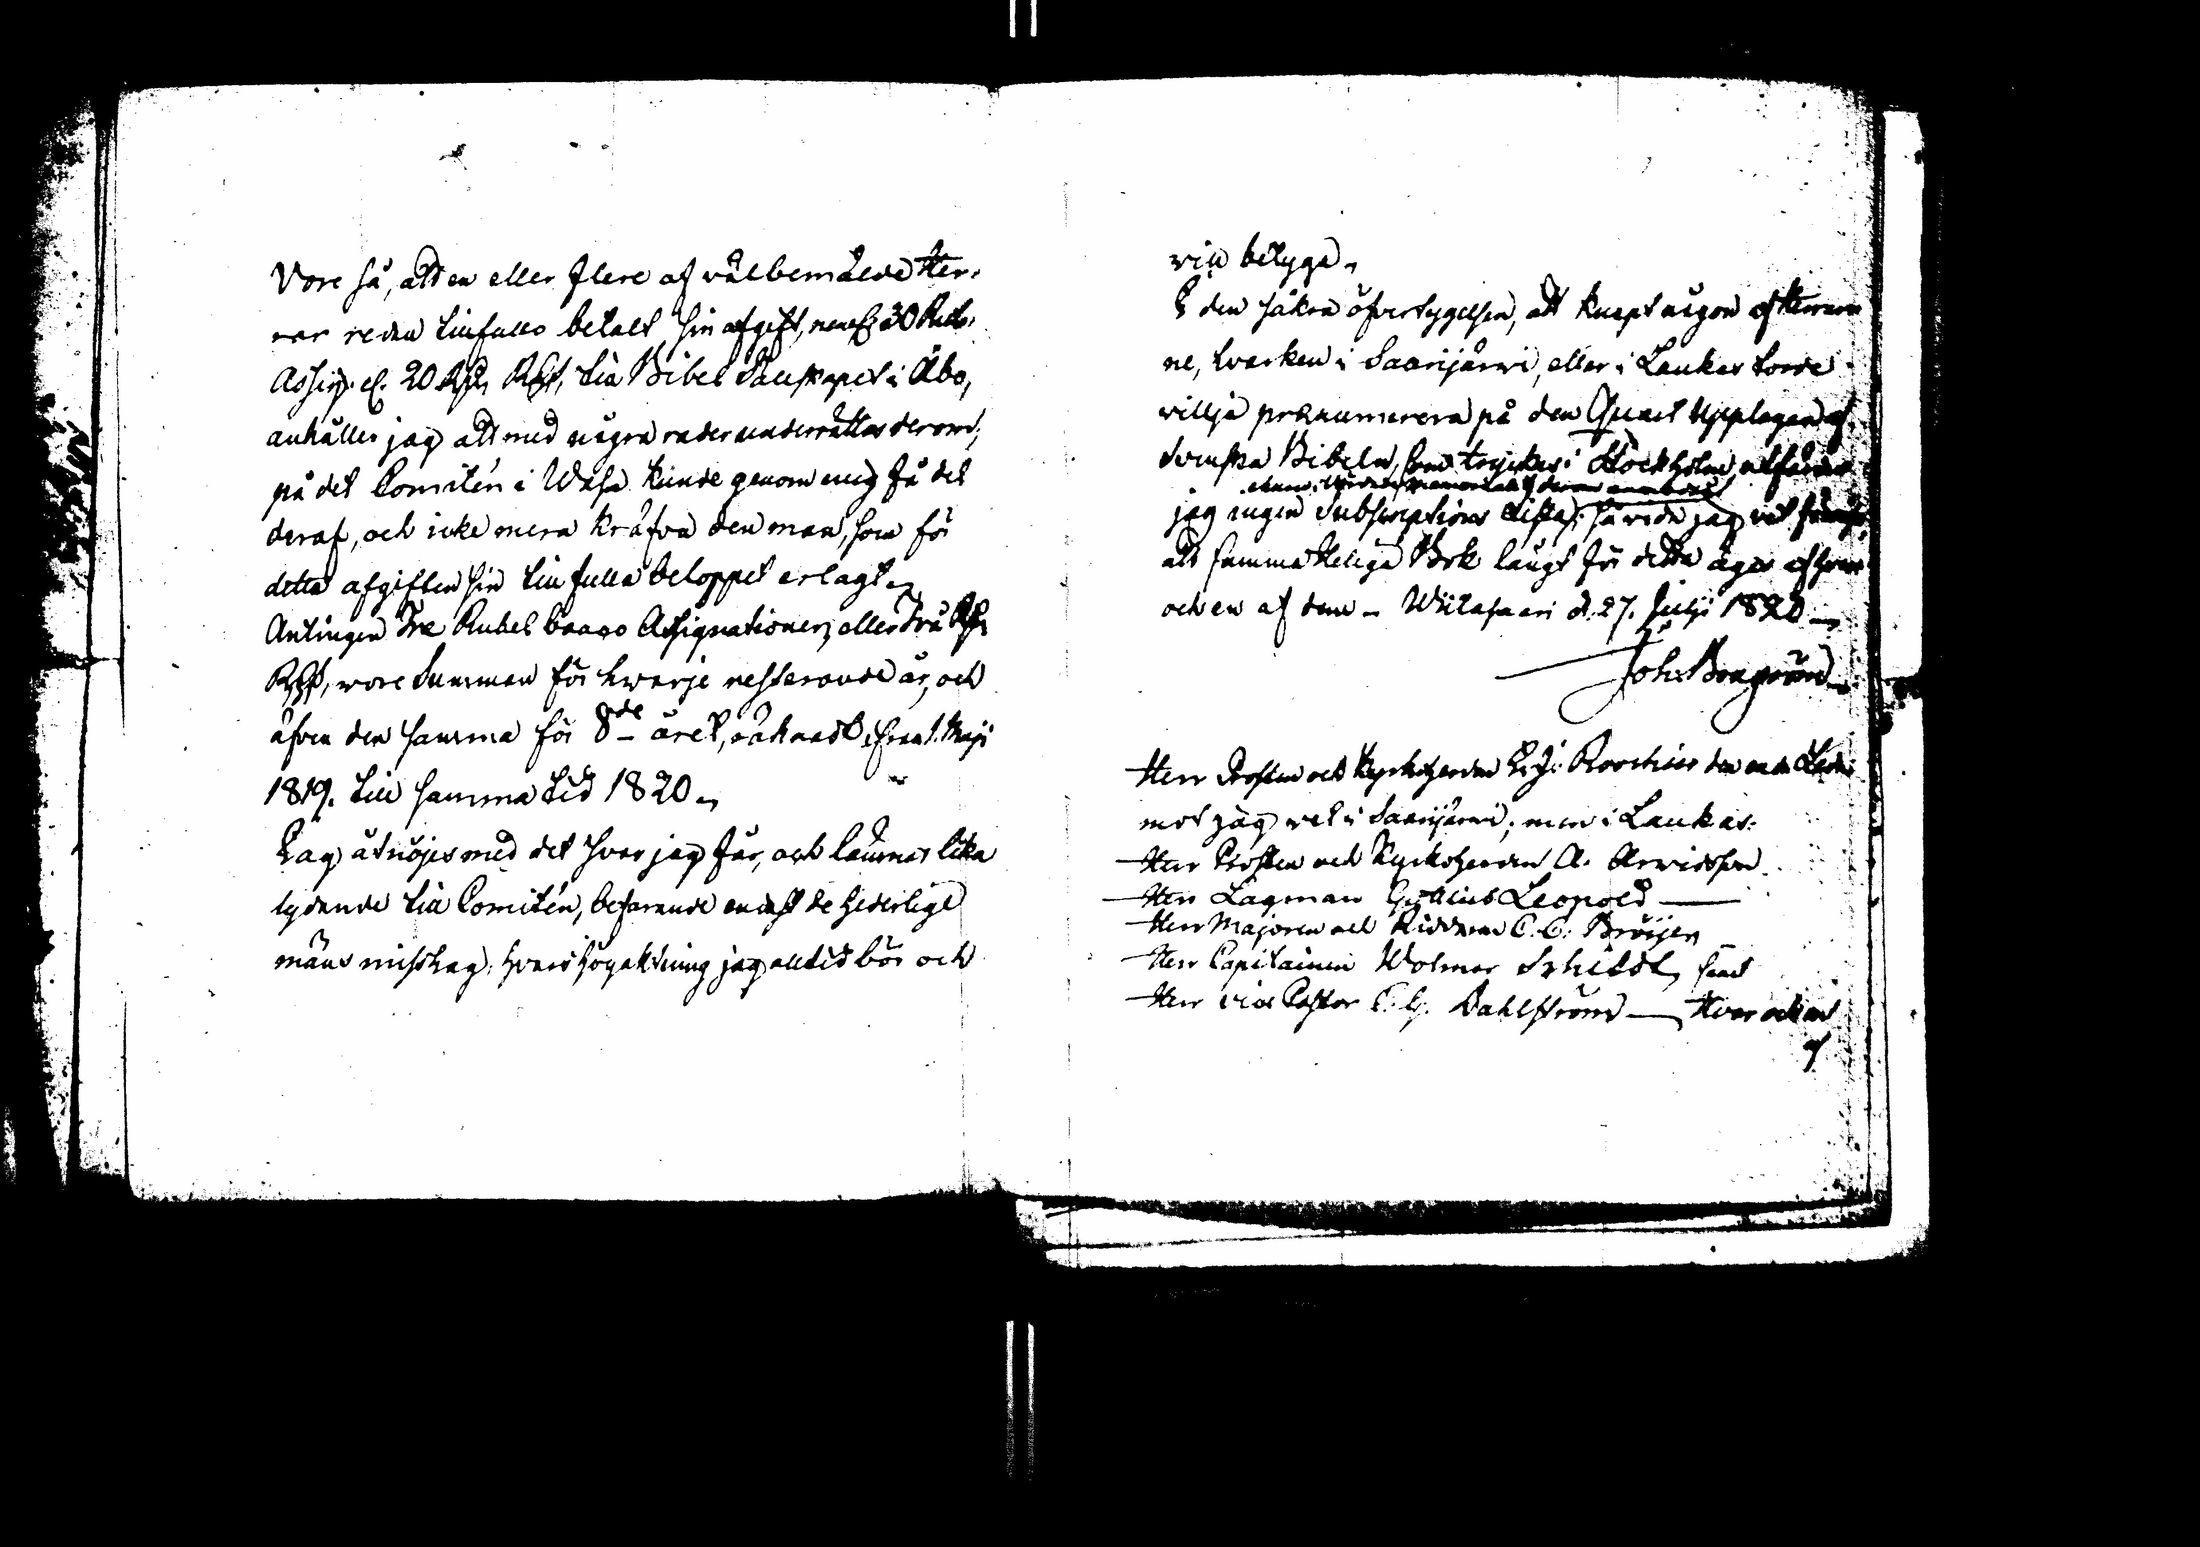 Vore så, att en eller flere af välbemälde Her-
rar redan tillfullo betalt sin afgift, 30 Rubl.
Assign. el. 20 Rd. Rgs, till Bibel Sällskapet i Åbo,
anhåller jag att med några rader underrättas derom,
på det Comitén i Wasa kunde genom mig få del
deraf, och icke mera kräfva den man, som för
detta afgiften sin till fulla beloppet erlagt.
Antingen Tre Rubel Banco Assignationer, eller Två Rd.
Rgs, wore Summan för hwarje resterande år, och
äfven den samma för 8de året, räknadt ifrån 1. Maji
1819. till samma tid 1820.
Jag åtnöjes med det svar jag får, och lämnar lika
lydande till Comitén, befarande endast de hederlige
mäns misshag, hvars högaktning jag alltid bör och
vill betyga.
I den säkra öfvertygelsen, att knapt någon af Herrar-
ne, hvarken i Saarijärvi, eller i Laukas torde
villja prænumerera på den Quart Upplagan af
Svenska Bibeln, som tryckes i Stockholm utfärdar
jag ingen Subscriptions Lista; så vida jag vet
att samma Heliga Bok längt för detta äges af hvar
och en af dem. Wiitasaari d. 27. Julji 1820
Joh: Bongrund
Herr Prosten och Kyrkoherden E. J: Roschier den enda Leda-
mot jag vet i Saarijärvi; men i Laukas:
Herr Prosten och Kyrkoherden A. Arwidsson
Herr Lagman Gustlieb Leopold
Herr Majoren och Riddaren C. C: Bröijer
Herr Capitainen Wolmar Schildt, samt
Herr vice Pastor C. G. Dahlström Hvar och en
af